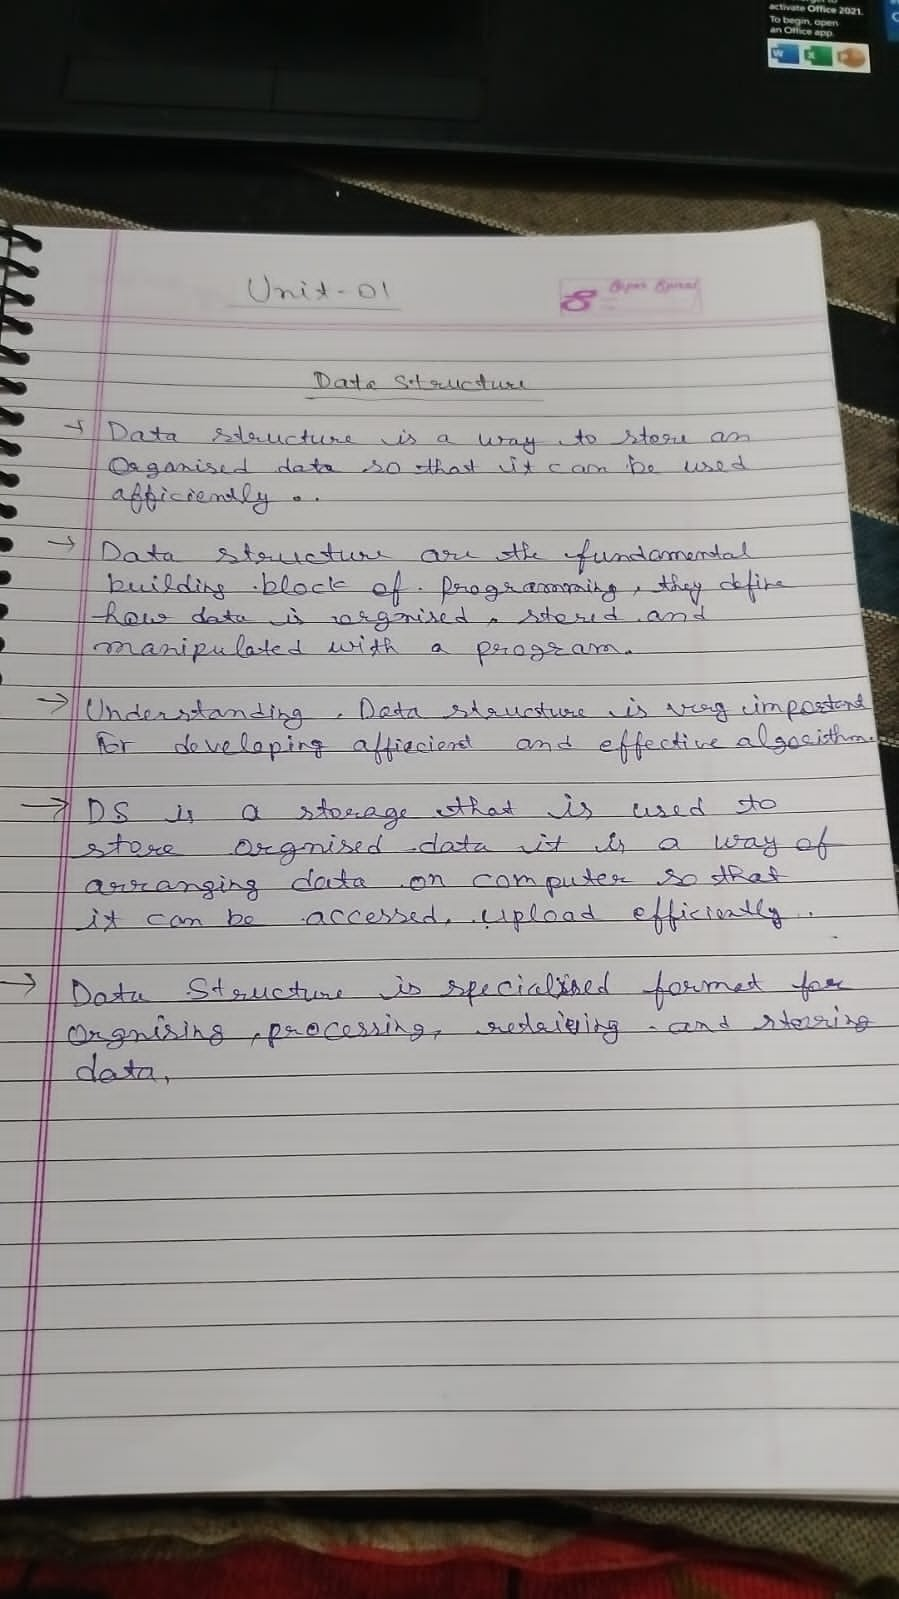 activate Office 2021.
To begin, open
an Office app.
Unit-01
Data Structure
→ Data structure is a way to store an
Organised data so that it can be used
afficiently..
→ Data structure are the fundamental
building block of programming, they define
how data is orgnised, stored and
manipulated with a program.
→ Understanding, Data structure is very important
For developing afficient and effective algorithm
→ DS is a storage that is used to
store orgnised data it is a way of
arranging data on computer so that
it can be accessed, Upload efficiently.
→ Data Structure is specialised format for
Orgnising, processing, retrieving and storing
data,